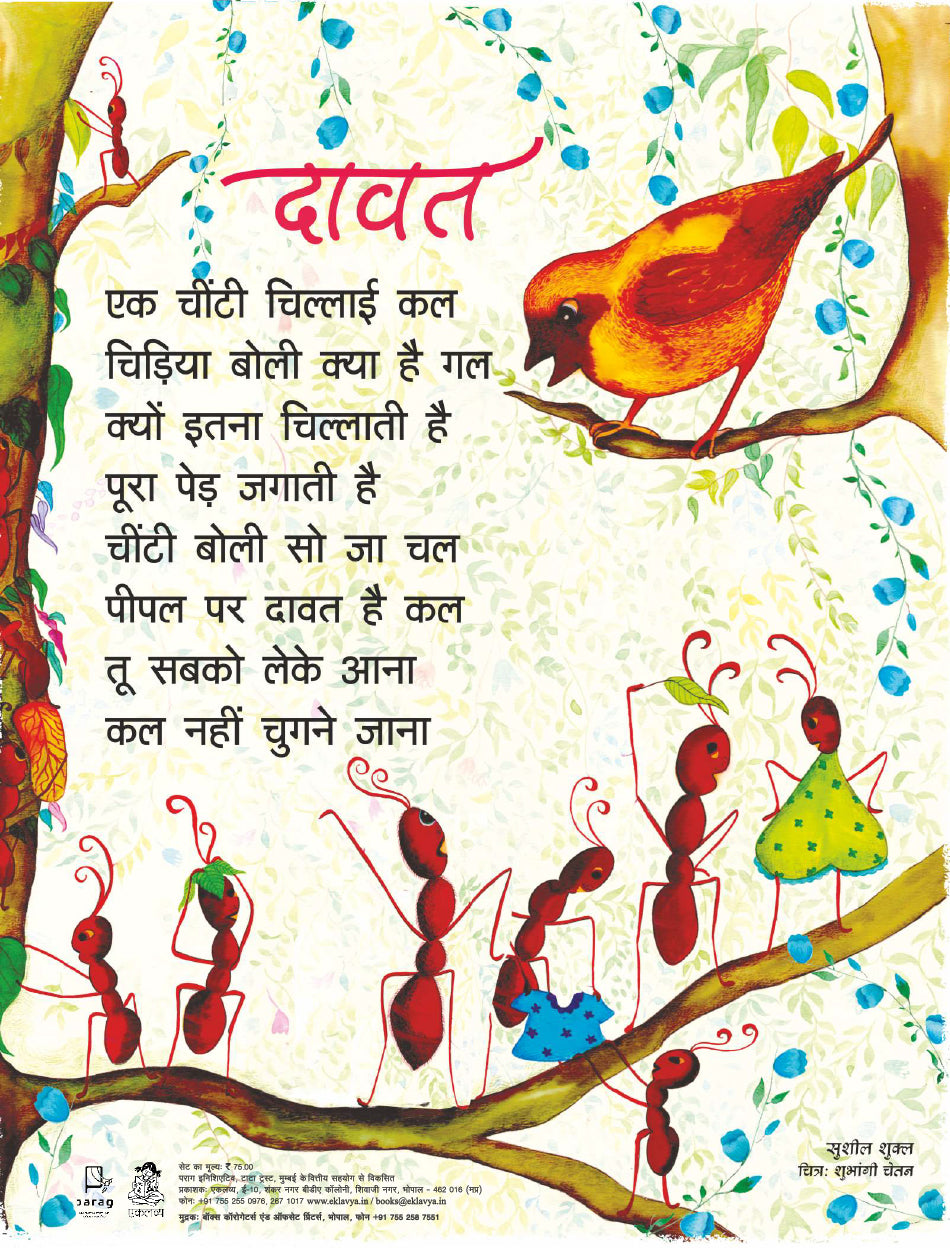 दावत
एक चींटी चिल्लाई कल
चिड़िया बोली क्या है गल
क्यों इतना चिल्लाती है
पूरा पेड़ जगाती है
चींटी बोली सो जा चल
पीपल पर दावत है कल
तू सबको लेके आना
कल नहीं चुगने जाना
सुशील शुक्ल
चित्र: शुभांगी चेतन
parag
एकलव्य
सेट का मूल्य: ₹ 75.00
पराग इनिशिएटिव, टाटा ट्रस्ट, मुम्बई के वित्तीय सहयोग से विकसित
प्रकाशक: एकलव्य, ई-10, शंकर नगर बीडीए कॉलोनी, शिवाजी नगर, भोपाल - 462 016 (मप्र)
फोन: +91 755 255 0976, 267 1017 www.eklavya.in / books@eklavya.in
मुद्रक: बॉक्स कॉरोगेटर्स एंड ऑफसेट प्रिंटर्स, भोपाल, फोन +91 755 258 7551